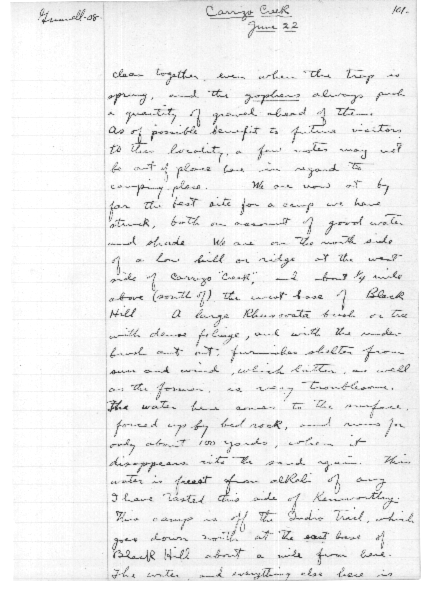 Grinnell-08
Carrizo Creek
June 22
101.
clear together, even when the trap is
sprung, and the gophers always push
a quantity of gravel ahead of them.
As of possible benefit to future visitors
to this locality, a few notes may not
be out of place here in regard to
camping place. We are now at by
far the best site for a camp we have
struck, both on account of good water
and shade. We are on the north side
of a low hill or ridge at the west
side of Carrizo "Creek", and about 1/4 mile
above (south of) the west base of Black
Hill. A large Rhus ovata bush or tree
with dense foliage, and with the under-
brush cut out, furnishes shelter from
sun and wind, which latter, as well
as the former, is very troublesome.
The water here comes to the surface,
forced up by bed rock, and runs for
only about 100 yards, when it
disappears into the sand again. This
water is freest from alkali of any
I have tasted this side of Kenworthy.
This camp is off the Indio Trail, which
goes down north at the east base of
Black Hill about a mile from here.
The water, and everything else here is